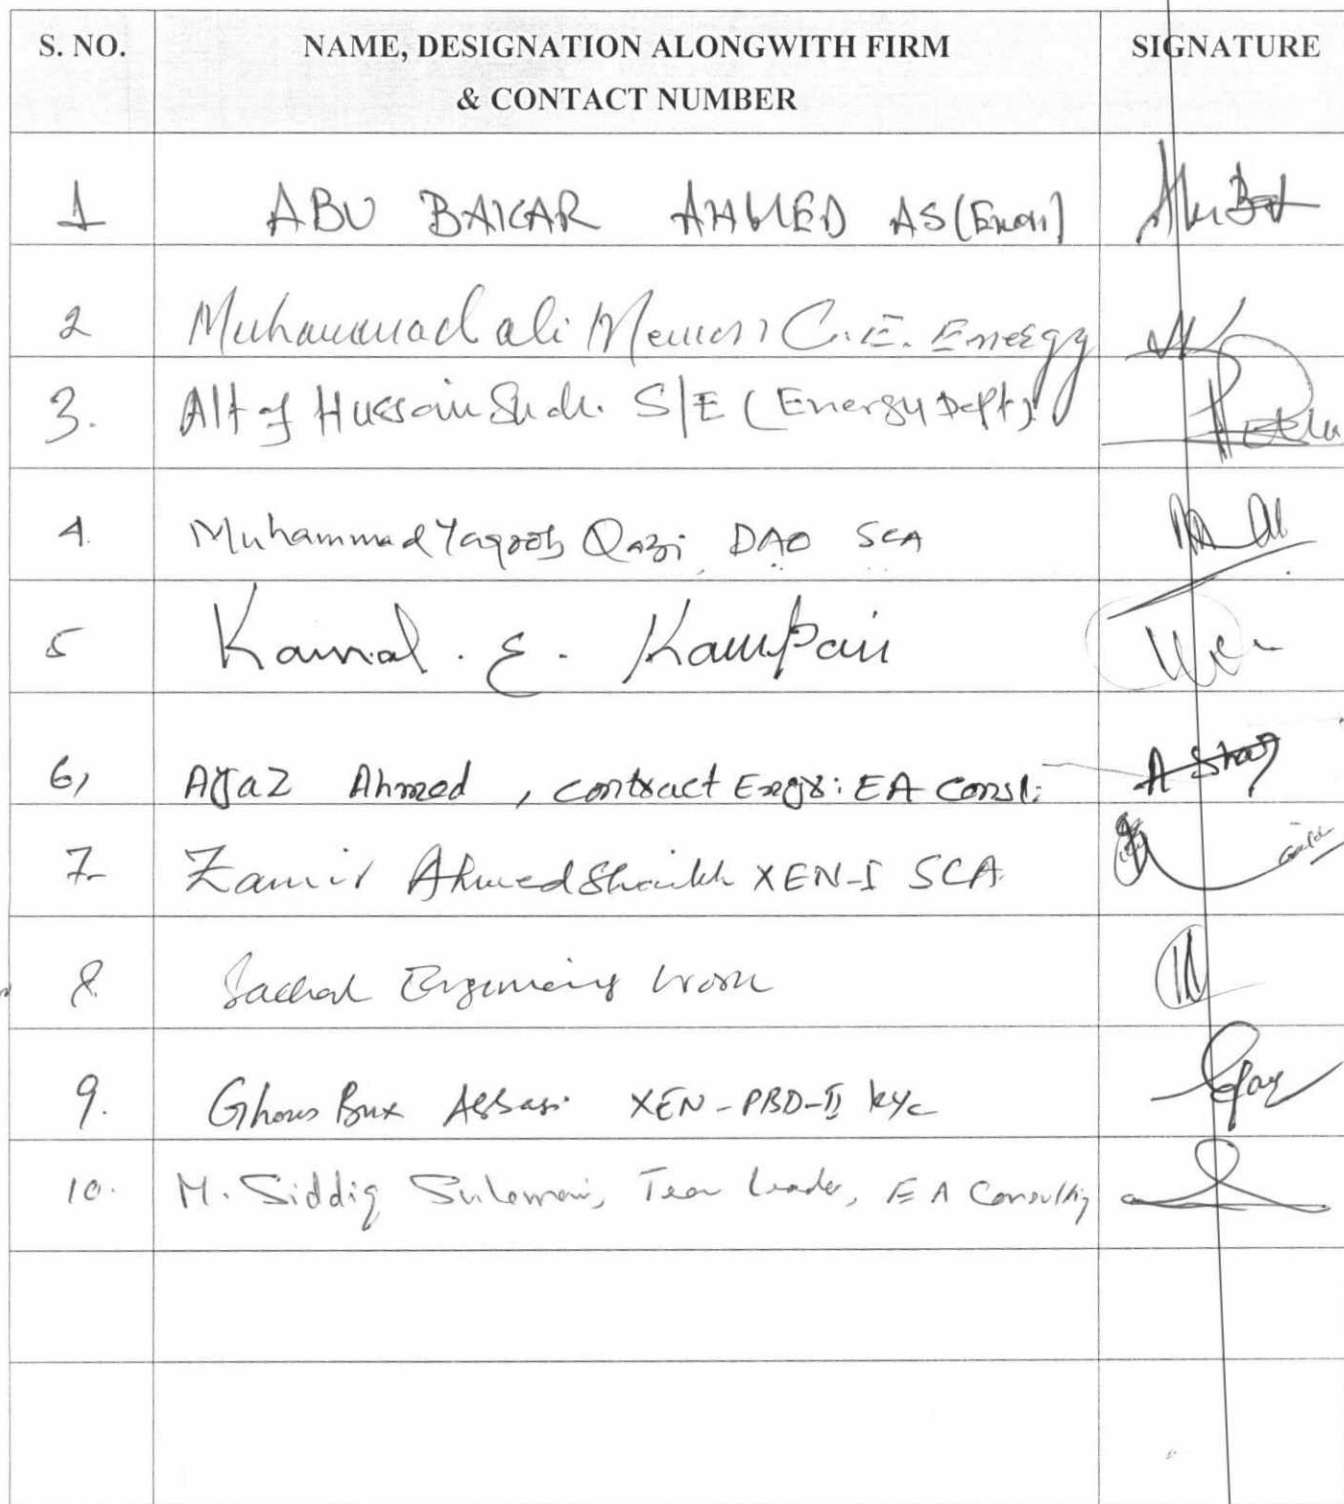 S. NO. NAME, DESIGNATION ALONGWITH FIRM & CONTACT NUMBER SIGNATURE
1 ABU BAKAR AHMED AS (Exon)
2 Muhammad ali Memon C.E. Energy
3. Altaf Hussain S/E (Energy Deptt)
4. Muhammad Yaqoob Qazi DAO SCA
5 Kamal . E .
6, Ajaz Ahmed , contract Engr: EA Consl:
7- Zamir Ahmed Shaikh XEN-I SCA
8. Sachal Engineering work
9. Ghous Bux Abbasi XEN-PBD-II kyc
10. M. Siddiq Suleman, Team Leader, EA Consulting